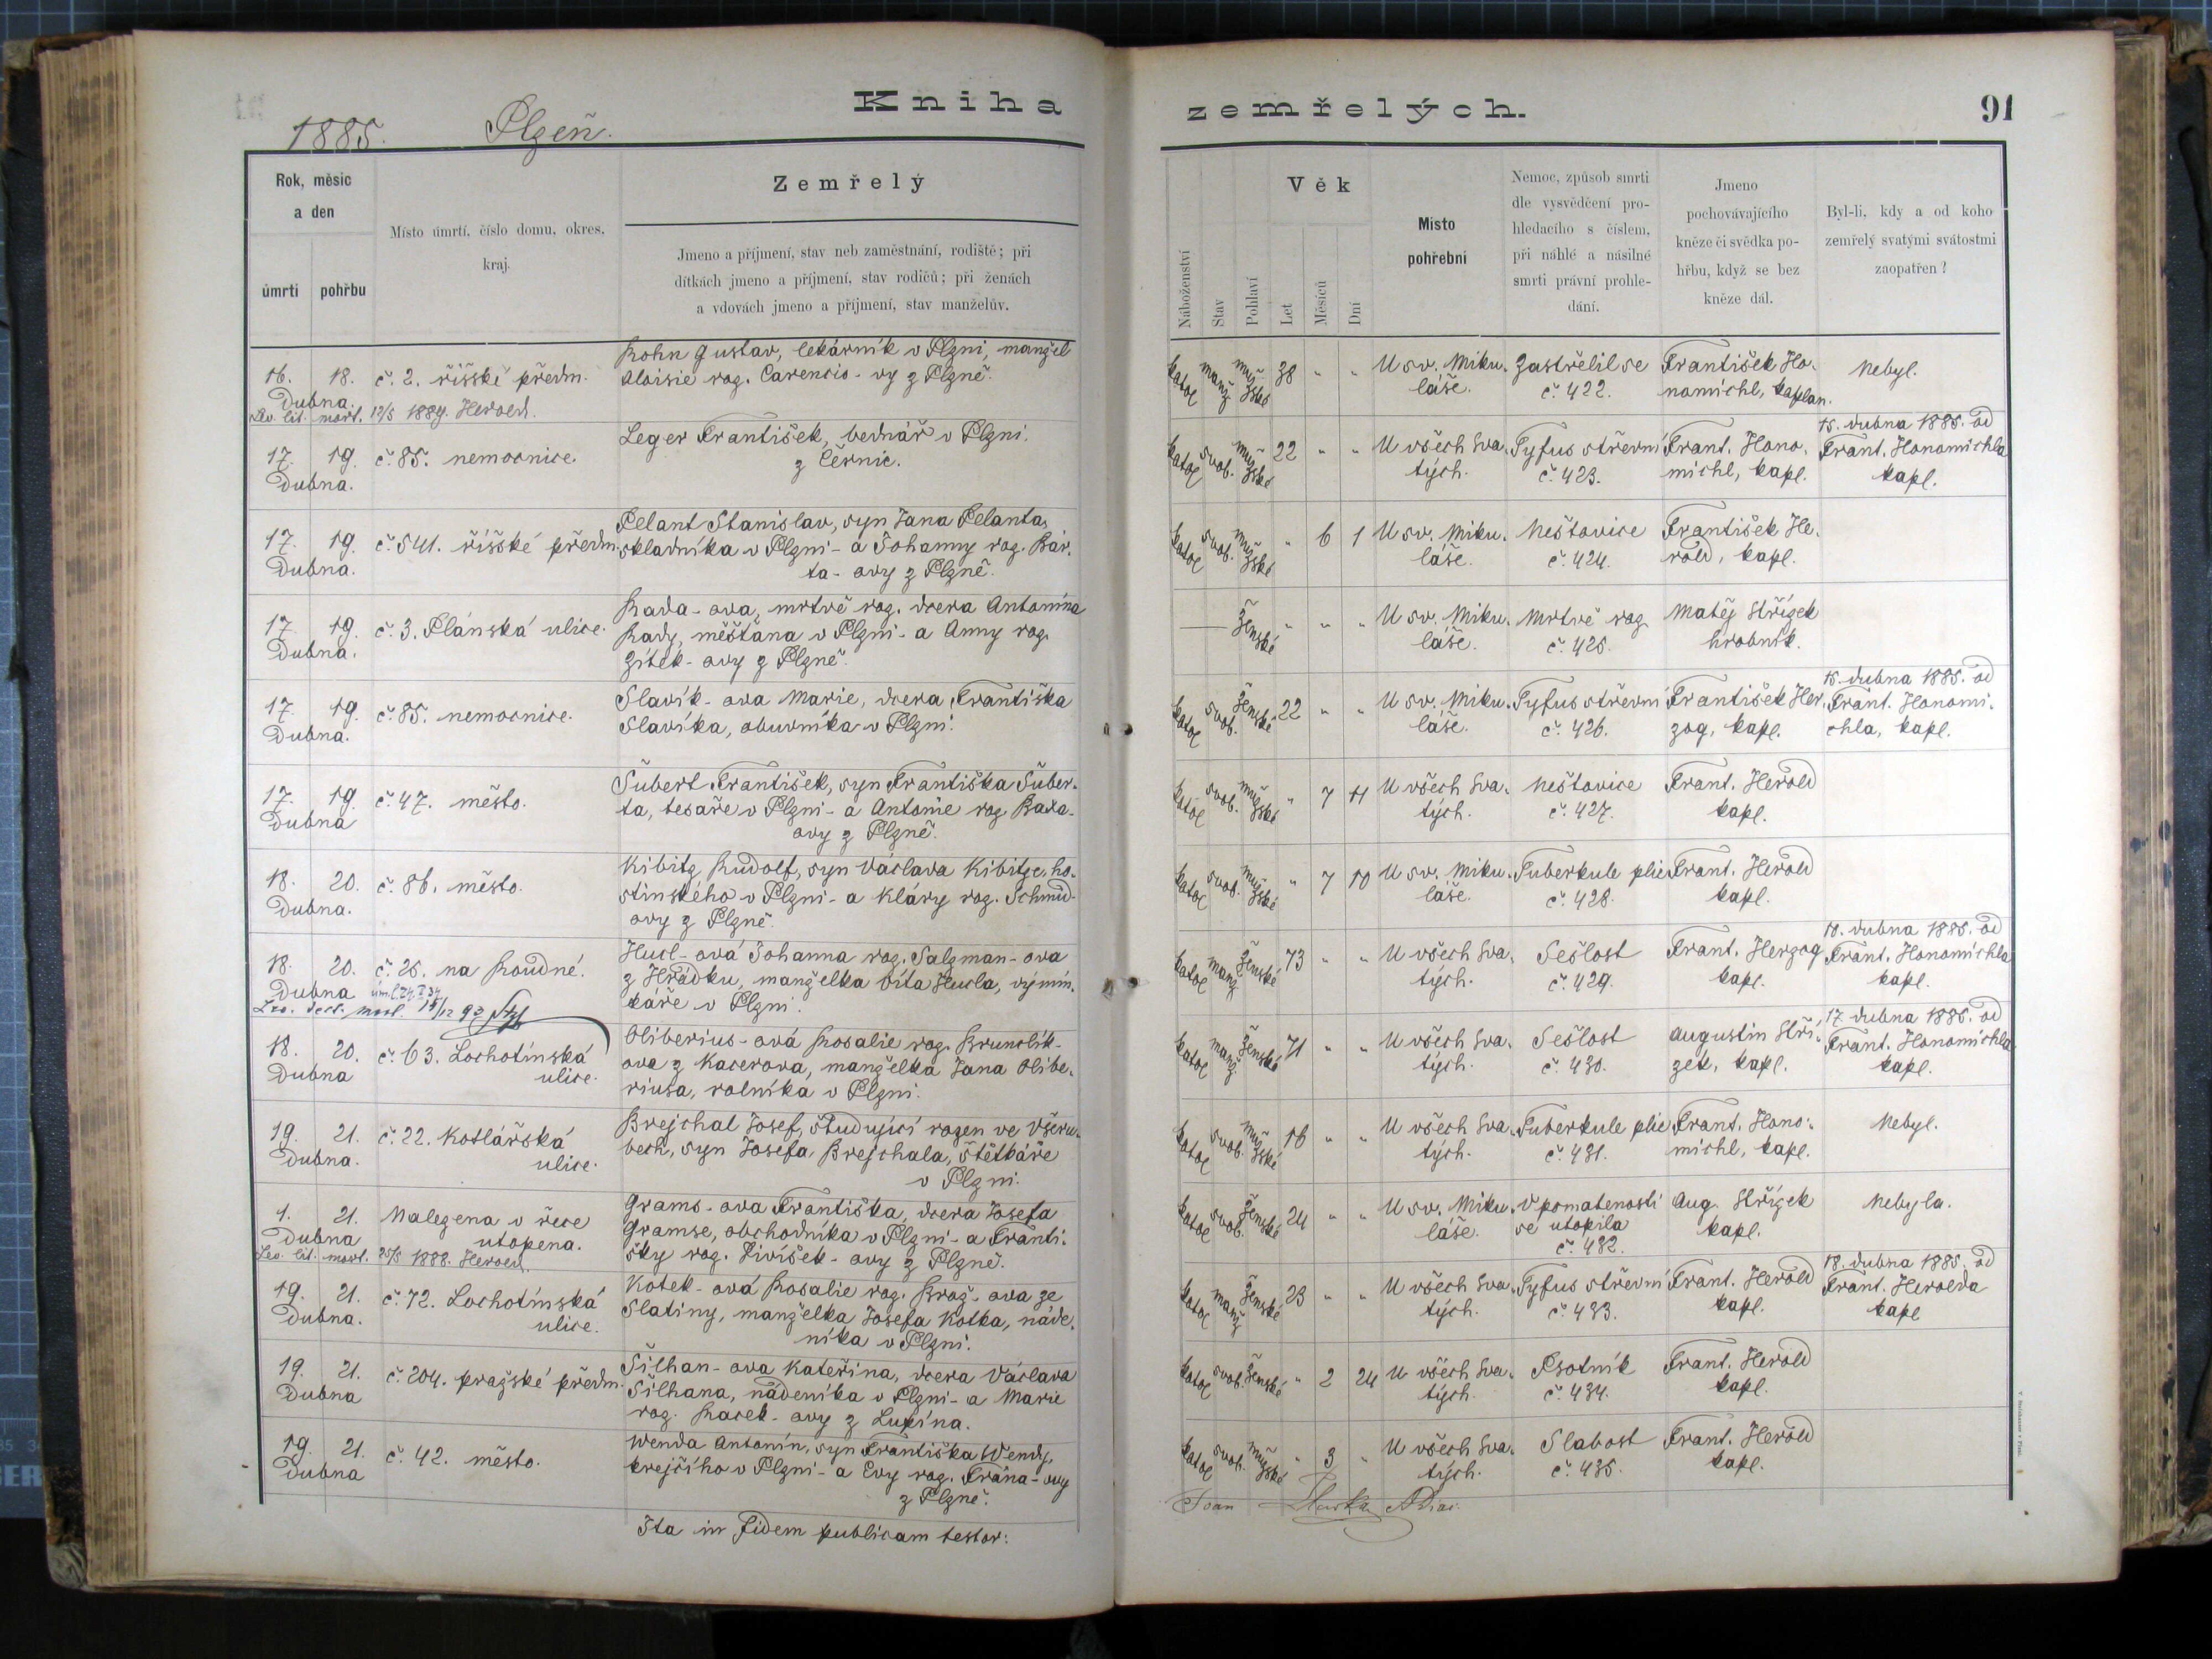 Kniha
1885. Plzeň.
Rok, měsíc
a den
úmrtí
pohřbu
Místo úmrtí, číslo domu, okres,
kraj.
Zemřelý
Jmeno a příjmení, stav neb zaměstnání, rodiště; při
dítkách jmeno a příjmení, stav rodičů; při ženách
a vdovách jmeno a příjmení, stav manželův.
16. 18. č. 2. říšské předm.
Dubna.
Lev. lit. mort. 12/5 1889. Herold.
Kohn Gustav, lekárník v Plzni, manžel
Aloisie roz. Carencio-vy z Plzně.
17. 19. č. 85. nemocnice.
Dubna.
Leger František, bednář v Plzni.
z Černic.
17. 19. č. 541. říšské předm.
Dubna.
Pelant Stanislav, syn Jana Pelanta,
skladníka v Plzni - a Johanny roz. Bár.
ta-ovy z Plzně.
17. 19. č. 3. Plánská ulice.
Dubna.
Rada-ova, mrtvě roz. dcera Antonína
Rady, měšťana v Plzni - a Anny roz.
Zítek-ovy z Plzně.
17. 19. č. 85. nemocnice.
Dubna.
Slavík-ova Marie, dcera Františka
Slavíka, obuvníka v Plzni.
17. 19. č. 47. město.
Dubna
Šubert František, syn Františka Šuber.
ta, tesaře v Plzni - a Antonie roz.
ovy z Plzně.
18. 20. č. 86. město.
Dubna.
Kibitz Rudolf, syn Václava Kibitze, ho.
stinského v Plzni - a Kláry roz. Schmid-
ovy z Plzně.
18. 20. č. 26. na Roudné.
Dubna
Hucl-ová Johanna roz. Salzman-ova
z Hrádku, manželka Víta Hucla, výmin.
káře v Plzni.
18. 20. č. 63. Lochotínská
Dubna ulice.
Oliberius-ová Rosalie roz. Brunclík-
ova z Kacerova, manželka Jana Olibe.
riusa, rolníka v Plzni.
19. 21. č. 22. Kotlářská
Dubna. ulice.
Brejchal Josef, študující rozen ve Všeru.
bech, syn Josefa Brejchala, štětkáře
v Plzni.
1. 21. Nalezena v řece
Dubna utopena.
Lev. lit. mort. 25/5 1888. Herold.
Grams-ova Františka, dcera Josefa
Gramse, obchodníka v Plzni - a Franti.
šky roz. Jivíšek-ovy z Plzně.
19. 21. č. 72. Lochotínská
Dubna. ulice.
Kotek-ová Rosalie roz. Brož-ova ze
Slatiny, manželka Josefa Kotka, náde.
níka v Plzni.
19. 21. č. 204. pražské předm.
Dubna
Šilhan-ova Kateřina, dcera Václava
Šilhana, nádeníka v Plzni - a Marie
roz. Racek-ovy z Lukína.
19. 21. č. 42. město.
Dubna
Wenda Antonín, syn Františka Wendy,
krejčího v Plzni - a Evy roz. Frána-ovy
z Plzně.
Ita in fidem publicam testor:
zemřelých.
91
Náboženství
Stav
Pohlaví
Věk
Let
Měsíců
Dní
Místo
pohřební
Nemoc, způsob smrti
dle vysvědčení pro-
hledacího s číslem,
při náhlé a násilné
smrti právní prohle-
dání.
Jmeno
pochovávajícího
kněze či svědka po-
hřbu, když se bez
kněze dál.
Byl-li, kdy a od koho
zemřelý svatými svátostmi
zaopatřen?
katol manž mužské 38 " " U sv. Miku. Zastřelil se František Ho. Nebyl.
láše. č. 422. nomichl, kaplan.
15. dubna 1885. od
katol svob. mužské 22 " " U všech Sva. Tyfus střevní Frant. Hono. Frant. Honomichla
tých. č. 423. michl, kapl. kapl.
katol svob. mužské " 6 1 U sv. Miku. Neštovice František He.
láše. č. 424. rold, kapl.
ženské " " " U sv. Miku. Mrtvě roz. Matěj Střízek
láše. č. 425. hrobník.
15. dubna 1885. od
katol svob. ženské 22 " " U sv. Miku. Tyfus střevní František Her. Frant. Honomi.
láše. č. 426. zog, kapl. chla, kapl.
katol svob. mužské " 7 11 U všech Sva. Neštovice Frant. Herold
tých. č. 427. kapl.
katol svob. mužské " 7 10 U sv. Miku. Tuberkule plic Frant. Herold
láše. č. 428. kapl.
10. dubna 1885. od
katol manž ženské 73 " " U všech Sva. Sešlost Frant. Herzog Frant. Honomichla
tých. č. 429. kapl. kapl.
17. dubna 1885. od
katol manž ženské 71 " " U všech Sva. Sešlost Augustin Stří. Frant. Honomichla
tých. č. 430. zek, kapl. kapl.
katol svob. mužské 16 " " U všech Sva. Tuberkule plic Frant. Hono. Nebyl.
tých. č. 431. michl, kapl.
katol svob. ženské 24 " " U sv. Miku. V pomatenosti Aug. Střízek Nebyla.
láše. se utopila kapl.
č. 432.
18. dubna 1885. od
katol manž ženské 23 " " U všech Sva. Tyfus střevní Frant. Herold Frant. Herolda
tých. č. 433. kapl. kapl
katol svob. ženské " 2 24 U všech Sva. Psotník Frant. Herold
tých. č. 434. kapl.
katol svob. mužské " 3 " U všech Sva. Slabost Frant. Herold
tých. č. 435. kapl.
Joan